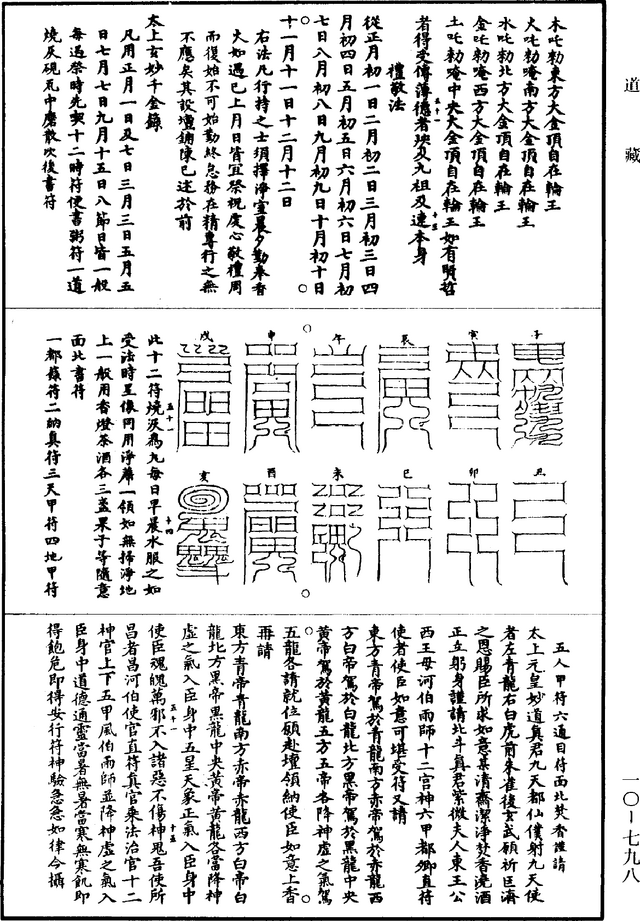 道藏
木吒勅東方大金頂自在輪王
火吒勅唵南方大金頂自在輪王
水吒勅北方大金頂自在輪王
金吒勅唵西方大金頂自在輪王
土吒勅唵中央大金頂自在輪王如有賢哲
者得受傳薄德者殃及九祖及連本身
五十一
十三
禮敬法
從正月初一日二月初二日三月初三日四
月初四日五月初五日六月初六日七月初
七日八月初八日九月初九日十月初十日
十一月十一日十二月十二日
右法凡行持之士須擇淨室晨夕勤奉香
火如遇已上月日皆宜祭祝虔心敬禮周
而復始不可始勤終怠務在精專行之無
不應矣其設壇鋪陳已述於前
太上玄妙千金籙
凡用正月一日及七日三月三日五月五
日七月七日九月十五日八節日皆一般
每遇祭時先製十二時符使書粥符一道
燒灰硯瓦中磨散吹後書符
子
寅
辰
午
申
戌
丑
卯
巳
未
酉
亥
此十二符燒灰為丸每日早晨水服之如
五十一
十四
受法時呈像同用淨席一領如無掃淨地
上一般用香燈茶酒各三盞果子等隨意
面北書符
一都籙符二納真符三天甲符四地甲符
五人甲符六通目符面北焚香誰請
太上元皇妙道真君九天都仙僕射九天使
者左青龍右白虎前朱雀後玄武願祈巨濟
之恩賜臣所求如意某清齋潔淨焚香澆酒
正立躬身謹請北斗真君紫微夫人東王公
西王母河伯雨師十二宮神六甲都卿直符
使者使臣如意可堪受符又請
東方青帝駕於青龍南方赤帝駕於赤龍西
方白帝駕於白龍北方黑帝駕於黑龍中央
黃帝駕於黃龍五方五帝各降神虛之氣駕
五龍各請就位願赴壇領納使臣如意上香
再請
東方青帝青龍南方赤帝赤龍西方白帝白
龍北方黑帝黑龍中央黃帝黃龍各當降神
虛之氣入臣身中五星天象正氣入臣身中
五十一
十五
使臣魂魄萬邪不入諸惡不傷神鬼吾使所
昌者昌河伯使官直符真官乘法治官十二
神官上下五甲風伯雨師並降神虛之氣入
臣身中道德通靈當暑無暑當寒無寒飢即
得飽危即得安行符神驗急急如律令攝
一〇－七九八